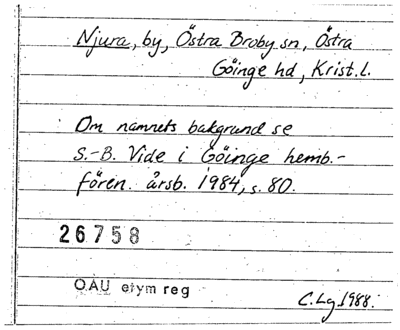 Njura, by, Östra Broby sn, Östra
Göinge hd, Krist.l.
Om namnets bakgrund se
S.-B. Vide i Göinge hemb.-
fören. årsb. 1984, s. 80.
26758
OAU etym reg
C. Lg 1988.